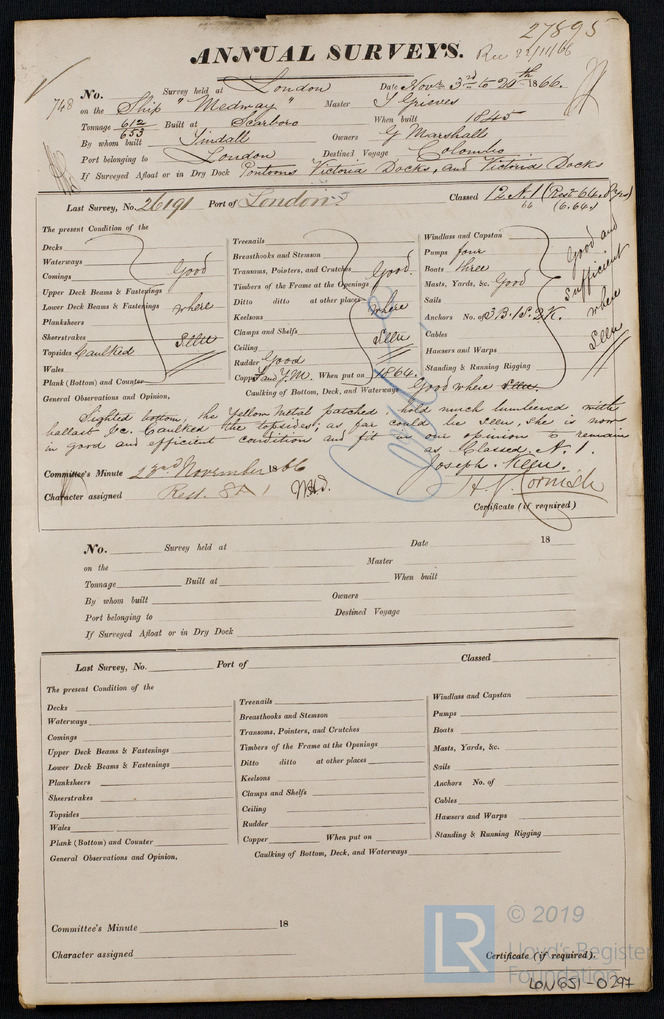 27895
ANNUAL SURVEYS. Rec 22/11/66
No. 748 Survey held at London Date Novr 3rd to 20th 1866.
on the Ship "Medway" Master J Grieves
Tonnage 612 / 653 Built at Scarboro When built 1845
By whom built Tindall Owners G Marshall
Port belonging to London Destined Voyage Colombo
If Surveyed Afloat or in Dry Dock Pontoons Victoria Docks, and Victoria Docks
Last Survey, No. 26191 Port of London Classed 12 A.1 (Rest 64.
66 (6.64)
The present Condition of the
Decks
Waterways
Comings Good
Upper Deck Beams & Fastenings
Lower Deck Beams & Fastenings where
Planksheers
Sheerstrakes Seen
Topsides Caulked
Wales
Plank (Bottom) and Counter
Treenails
Breasthooks and Stemson
Transoms, Pointers, and Crutches Good.
Timbers of the Frame at the Openings
Ditto ditto at other places where
Keelsons
Clamps and Shelfs Seen
Ceiling
Rudder Good
Copper and Y.M. When put on 1864.
Caulking of Bottom, Deck, and Waterways Good where seen.
Windlass and Capstan Good and
Pumps four Sufficient
Boats three where
Masts, Yards, &c. Good Seen
Sails
Anchors No. of 3 B. 1 S. 2 K.
Cables
Hawsers and Warps
Standing & Running Rigging
General Observations and Opinion,
Sighted bottom, the Yellow Metal patched hold much lumbered with
ballast &c. Caulked the topsides; as far could be seen, she is now
in good and efficient condition and fit in our opinion to remain
as Classed A.1.
Joseph Keen.
Committee's Minute 23rd November 1866
H J Cornish
Character assigned Rest. 8 A 1
Certificate (if required)
No. Survey held at Date 18
on the Master
Tonnage Built at When built
By whom built Owners
Port belonging to Destined Voyage
If Surveyed Afloat or in Dry Dock
Last Survey, No. Port of Classed
The present Condition of the
Decks
Waterways
Comings
Upper Deck Beams & Fastenings
Lower Deck Beams & Fastenings
Planksheers
Sheerstrakes
Topsides
Wales
Plank (Bottom) and Counter
General Observations and Opinion,
Treenails
Breasthooks and Stemson
Transoms, Pointers, and Crutches
Timbers of the Frame at the Openings
Ditto ditto at other places
Keelsons
Clamps and Shelfs
Ceiling
Rudder
Copper When put on
Caulking of Bottom, Deck, and Waterways
Windlass and Capstan
Pumps
Boats
Masts, Yards, &c.
Sails
Anchors No. of
Cables
Hawsers and Warps
Standing & Running Rigging
Committee's Minute 18
Character assigned
Certificate (if required).
LR © 2019
Lloyd's Register
Foundation
LON651-0297